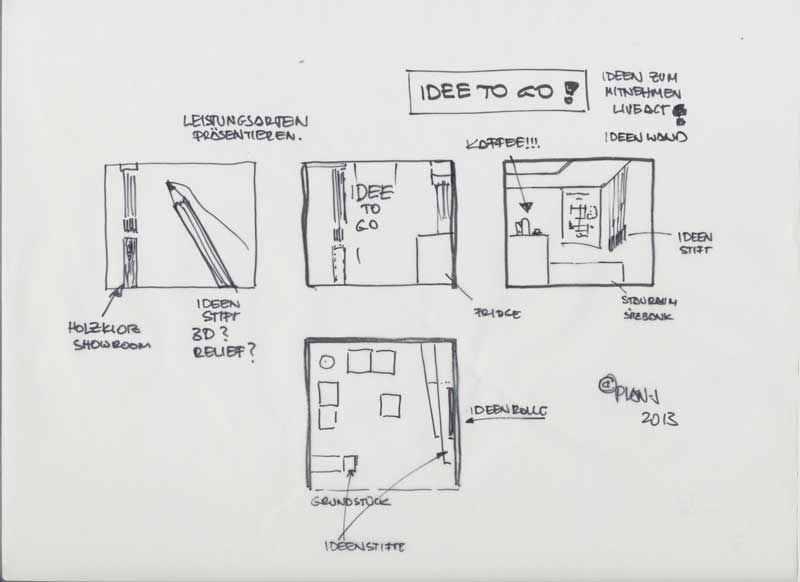 IDEE TO GO !
IDEEN ZUM
MITNEHMEN
LIVEACT
!
IDEENWAND
LEISTUNGSARTEN
PRÄSENTIEREN.
KAFFEE!!!
IDEE
TO
GO
!
IDEEN
STIFT
HOLZKLOTZ
SHOWROOM
IDEEN
STIFT
3D?
RELIEF?
FRIDGE
STAURAUM
SITZBANK
IDEENROLLE
@PLAN-J
2013
GRUNDSTÜCK
IDEENSTIFTE